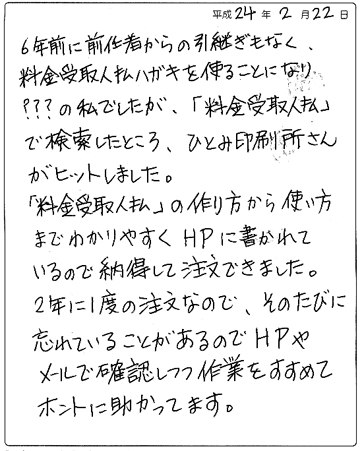 平成24年2月22日
6年前に前任者からの引継ぎもなく、
料金受取人払ハガキを使ることになり
???の私でしたが、「料金受取人払」
で検索したところ、ひとみ印刷所さん
がヒットしました。
「料金受取人払」の作り方から使い方
までわかりやすくHPに書かれて
いるので納得して注文できました。
2年に1度の注文なので、そのたびに
忘れていることがあるのでHPや
メールで確認しつつ作業をすすめて
ホントに助かってます。